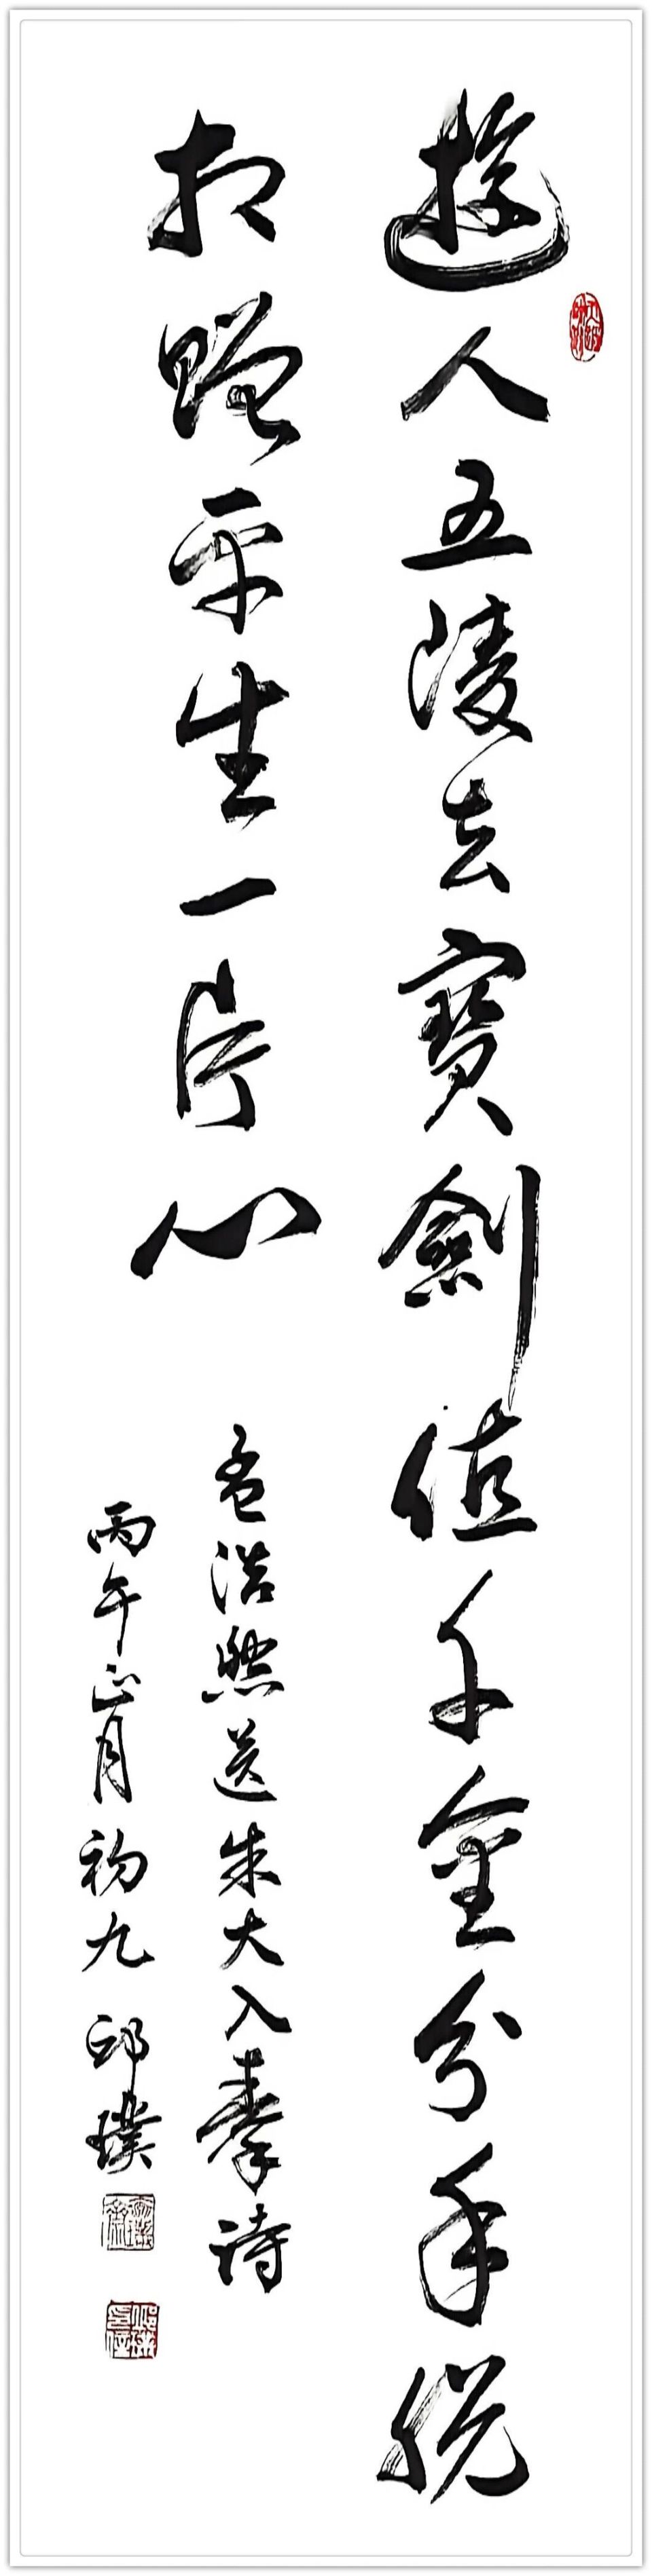 遊人五陵去寶劍值千金分手脫
相贈平生一片心
孟浩然送朱大入秦诗
丙午正月初九 邱璞